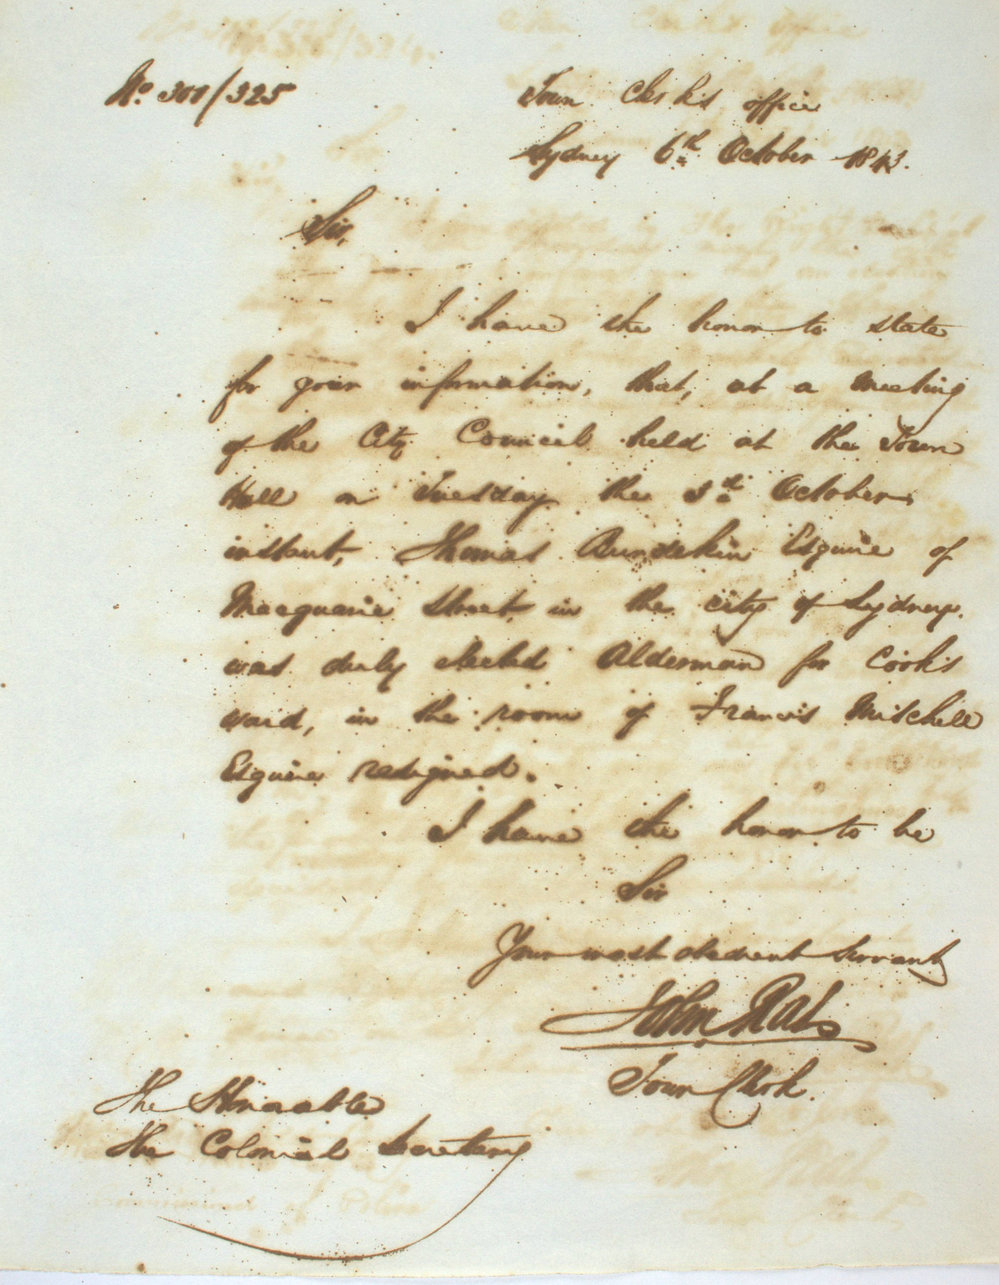 No. 300/325
Town Clerk's office
Sydney 6th October 1843.
Sir,
I have the honor to state
for your information, that, at a meeting
of the City Council held at the Town
Hall on Tuesday the 3rd October
instant, Thomas Burdekin Esquire of
Macquarie Street, in the city of Sydney.
was duly elected Alderman for Cook's
ward, in the room of Francis Mitchell
Esquire resigned.
I have the honor to be
Sir
Your most obedient Servant
John Rae
Town Clerk.
The Honorable
The Colonial Secretary